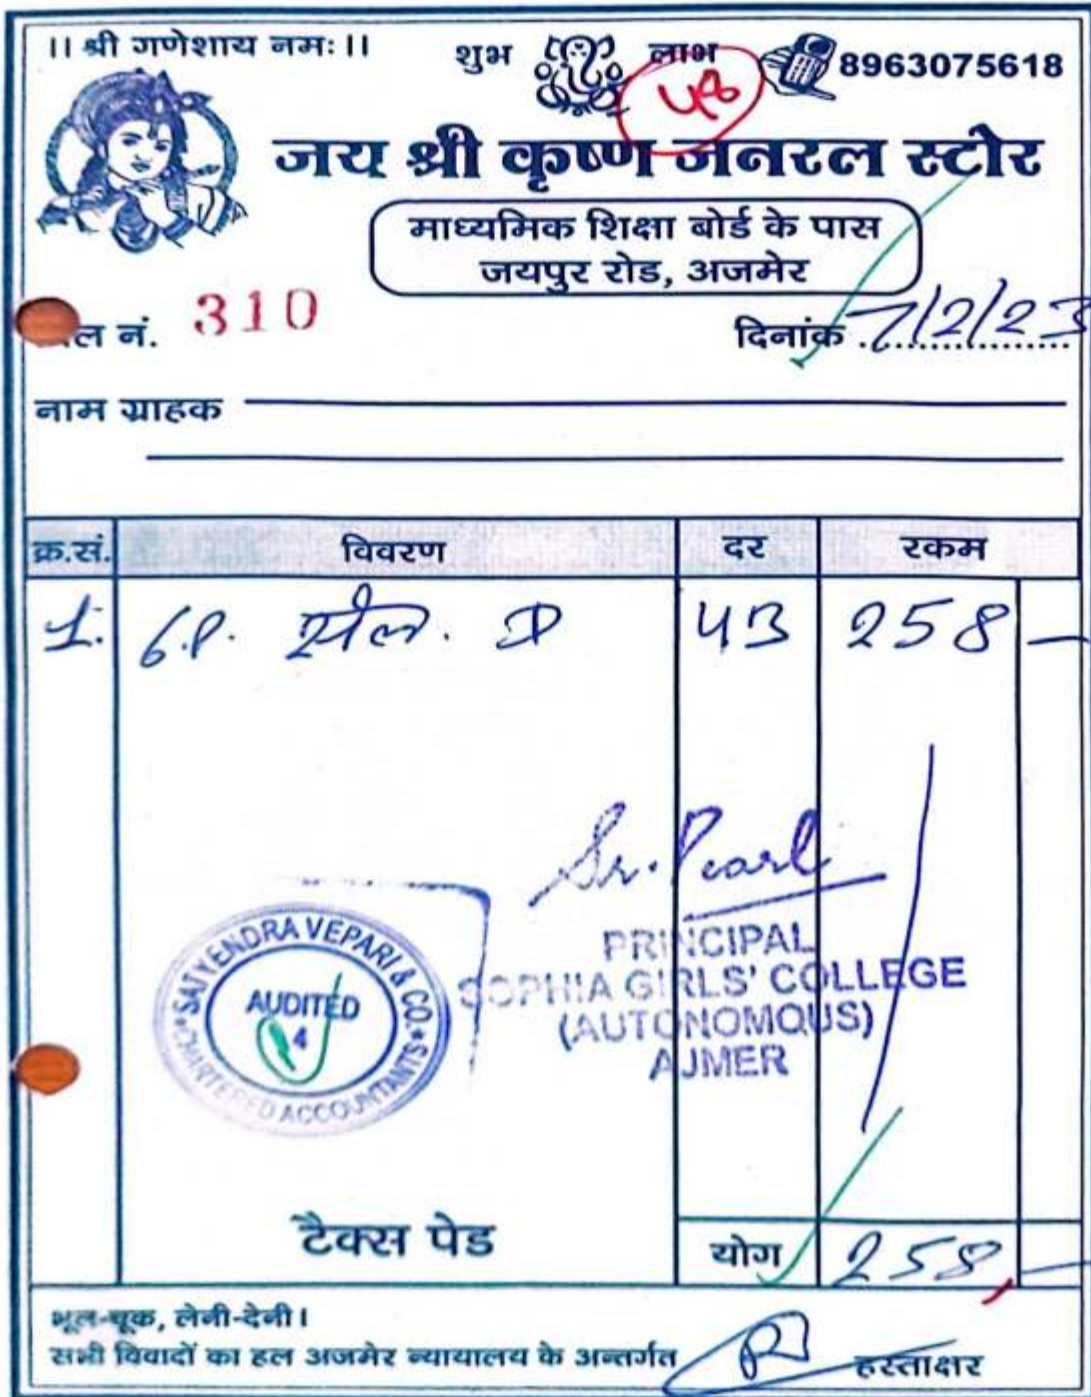 ।। श्री गणेशाय नमः ।।
शुभ लाभ 8963075618
जय श्री कृष्ण जनरल स्टोर
माध्यमिक शिक्षा बोर्ड के पास
जयपुर रोड, अजमेर
नं. 310
दिनांक 7/2/23
नाम ग्राहक
क्र.सं. विवरण दर रकम
1. 6.P. सेल. D 43 258 —
Sr. Pearl
PRINCIPAL
SOPHIA GIRLS' COLLEGE
(AUTONOMOUS)
AJMER
SATYENDRA VEPARI & CO.
AUDITED
4
CHARTERED ACCOUNTANTS
टैक्स पेड योग 258 —
भूल-चूक, लेनी-देनी।
सभी विवादों का हल अजमेर न्यायालय के अन्तर्गत हस्ताक्षर